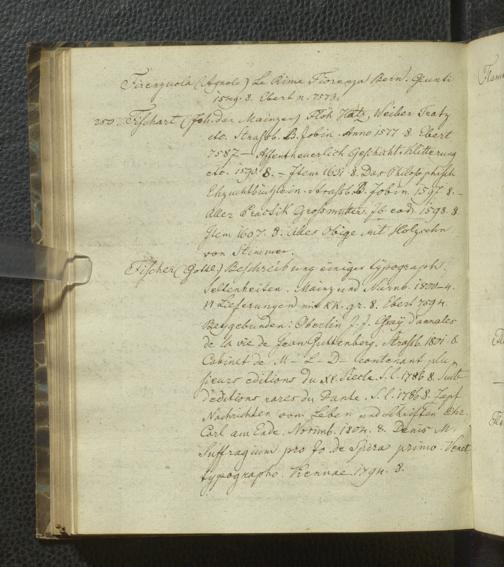 Firenzuola (Agnolo) Le Rime Fiorenza Bern. Giunti
1549. 8. Ebert n. 7573.
250. Fischart (Joh. der Mainzer) Flöh Hatz, Weiber Tratz
etc. Strasb. B. Jobin. Anno 1577. 8. Ebert
7587 – Affentheuerlich Geschicht-Klitterung
etc. 8. – Item 1631 8. Das Philosophisch
Ehzuchtbüchlein. Strasb. B. Jobin. 1597. 8. –
Aller Practik Grossmutter. Ib. eod. 1598. 8
Item 1607. 8. Alles Obige mit Holzschn
von Stimmer.
Fischer (Gotth.) Beschreibung einiger typograph.
Seltenheiten. Mainz und Nürnb. 1800–4.
Lieferungen mit KK. gr. 8. Ebert 7594.
Beygebunden: Oberlin J. J. Essay d'annales
de la vie de Jean Guttenberg. Strasb. 1801. 8
Cabinet de M – L – D – contenant plu
sieurs editions du XV. Siecle. S. l. 1786 8. Suit
d'editions rares du Dante. S. l. 1786 8.
Nachrichten vom Leben und Schriften Chr.
Carl am Ende. Norimb. 1804. 8. Denis M.
Suffragium pro Jo. de Spira primo Venet
typographo. Viennae 1794. 8.